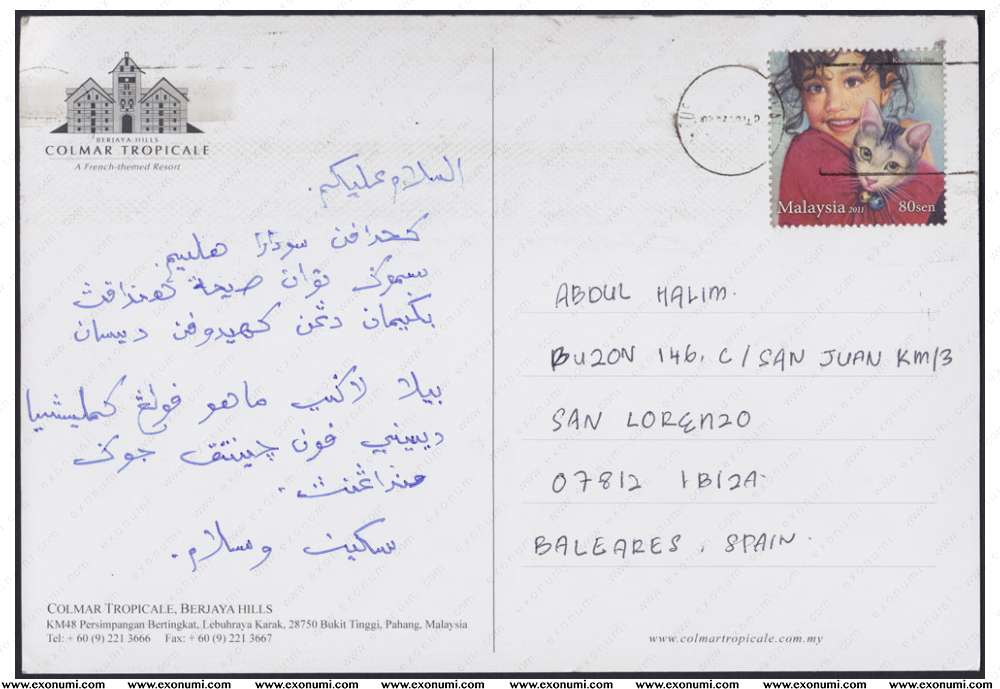 BERJAYA HILLS
COLMAR TROPICALE
A French-themed Resort
السلام عليكم.
كحدافن سودارا هليم.
سموک توان صيحة هنداقث
بکيمان دڠن کهيدوفن ديسان
بيلا لاکي ماهو فولڠ کمليشيا
ديسيني فون چينتق جوک
سکين وسلام.
COLMAR TROPICALE, BERJAYA HILLS
KM48 Persimpangan Bertingkat, Lebuhraya Karak, 28750 Bukit Tinggi, Pahang, Malaysia
Tel: + 60 (9) 221 3666 Fax: + 60 (9) 221 3667
Malaysia 2011 80sen
ABDUL HALIM.
BUZON 146. C/SAN JUAN KM/3
SAN LORENZO
07812 IBIZA.
BALEARES, SPAIN.
www.colmartropicale.com.my
www.exonumi.com www.exonumi.com www.exonumi.com www.exonumi.com www.exonumi.com www.exonumi.com www.exonumi.com www.exonumi.com